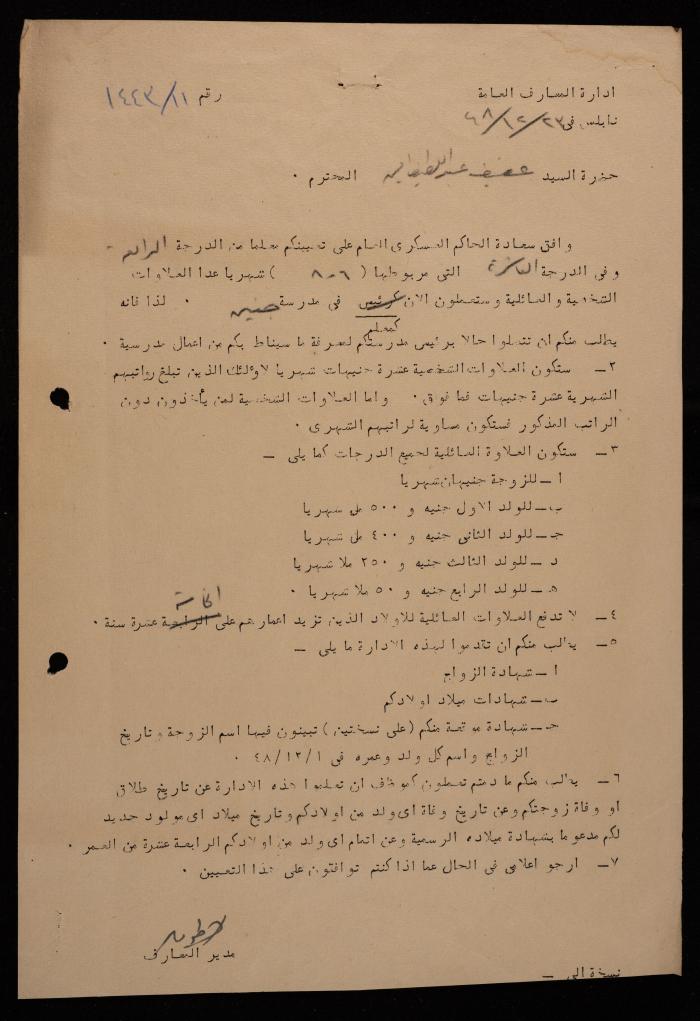 ادارة المعارف العامة
رقم ١٤٤٣/١١
نابلس فى ٢٣/١٢/٤٨
حضرة السيد عفيف المحترم ٠
وافق سعادة الحاكم العسكرى العام على تعيينكم معلما من الدرجة الرابعة
وفى الدرجة العاشرة التى مربوطها ( ٦-٨ ) شهريا عدا العلاوات
الشخصية والعائلية وستعملون الان كرئيس فى مدرسة جنين ٠ لذا فانه
كمعلم
يطلب منكم ان تتصلوا حالا برئيس مدرستكم لمعرفة ما سيناط بكم من اعمال مدرسية ٠
٢ــ ستكون العلاوات الشخصية عشرة جنيهات شهريا لاولئك الذين تبلغ رواتبهم
الشهرية عشرة جنيهات فما فوق ٠ واما العلاوات الشخصية لمن يأخذون دون
الراتب المذكور فستكون مساوية لراتبهم الشهرى ٠
٣ــ ستكون العلاوة العائلية لجميع الدرجات كما يلى ــ
ا ــ للزوجة جنيهان شهريا
ب ــ للولد الاول جنيه و ٥٠٠ مل شهريا
جـ ــ للولد الثانى جنيه و ٤٠٠ مل شهريا
د ــ للولد الثالث جنيه و ٢٥٠ ملا شهريا
هـ ــ للولد الرابع جنيه و ٥٠ ملا شهريا ٠
الخامسة
٤ــ لا تدفع العلاوات العائلية للاولاد الذين تزيد اعمارهم على الرابعة عشرة سنة ٠
٥ــ يطلب منكم ان تقدموا لهذه الادارة ما يلى ــ
ا ــ شهادة الزواج
ب ــ شهادات ميلاد اولادكم
جـ ــ شهادة موقعة منكم (على نسختين) تبينون فيها اسم الزوجة وتاريخ
الزواج واسم كل ولد وعمره فى ٤٨/١٢/١ ٠
٦ــ يطلب منكم ما دمتم تعملون كموظف ان تعلموا هذه الادارة عن تاريخ طلاق
او وفاة زوجتكم وعن تاريخ وفاة اى ولد من اولادكم وتاريخ ميلاد اى مولود جديد
لكم مدعوما بشهادة ميلاده الرسمية وعن اتمام اى ولد من اولادكم الرابعة عشرة من العمر ٠
٧ــ ارجو اعلامى فى الحال عما اذا كنتم توافقون على هذا التعيين ٠
مدير المعارف
نسخة الى ــ